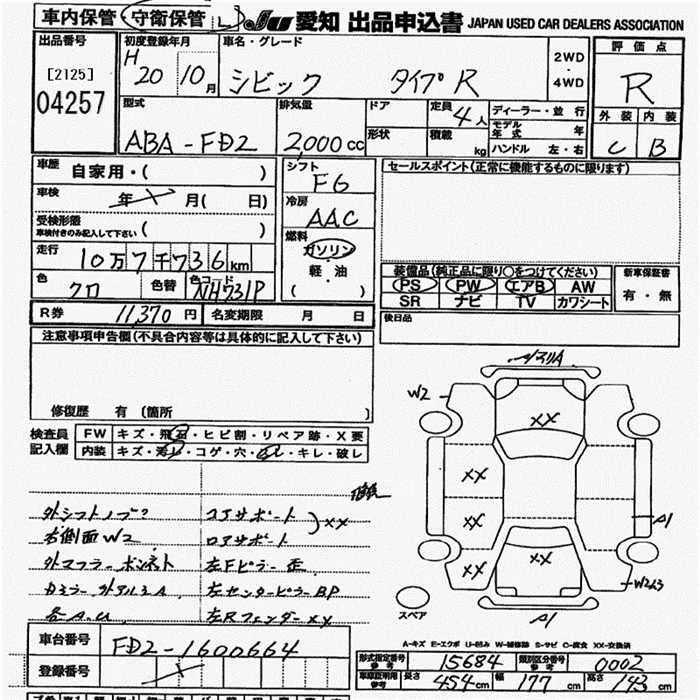 車内保管 守衛保管 L JU 愛知 出品申込書 JAPAN USED CAR DEALERS ASSOCIATION
出品番号 [2125] 04257
初度登録年月 H 20 10月
車名・グレード シビック タイプR
2WD・4WD
評価点 R
外装 C 内装 B
型式 ABA-FD2
排気量 2000cc
ドア 形状
定員 4人
積載 kg
ディーラー・並行
モデル年式 年
ハンドル 左・右
車歴 自家用・( )
車検 年 月( 日)
受検形態 車検付きのみ記入して下さい ( )
走行 10万7千736km
色 クロ 色替 色コード NH731P
シフト F6
冷房 AAC
燃料 ガソリン 軽・油 ( )
セールスポイント(正常に機能するものに限ります)
装備品(純正品に限り○をつけてください)
PS PW エアB AW
SR ナビ TV カワシート
新車保証書 有・無
R券 11,370円 名変期限 月 日
後日品
注意事項申告欄(不具合内容等は具体的に記入して下さい)
修復歴 有 (箇所 )
検査員記入欄
FW キズ・飛石・ヒビ割・リペア跡・X要
内装 キズ・汚レ・コゲ・穴・切レ・キレ・破し
外シフトノブ?
右側面W2
外マフラー ボンネト
コアサポート
ロアサポート
XX
左Fピラー 歪
左センターピラーBP
左Rフェンダー XX
W2
XX
XX
XX
XX
XX
A1
W2
A1
スペア
車台番号 FD2-1600664
登録番号
A-キズ E-エクボ U-凹み W-補修跡 S-サビ C-腐食 XX-交換済
形式指定番号 参考 15684 類別区分番号 参考 0002
車庫証明用 参考 長さ 454cm 幅 177cm 高さ 143cm